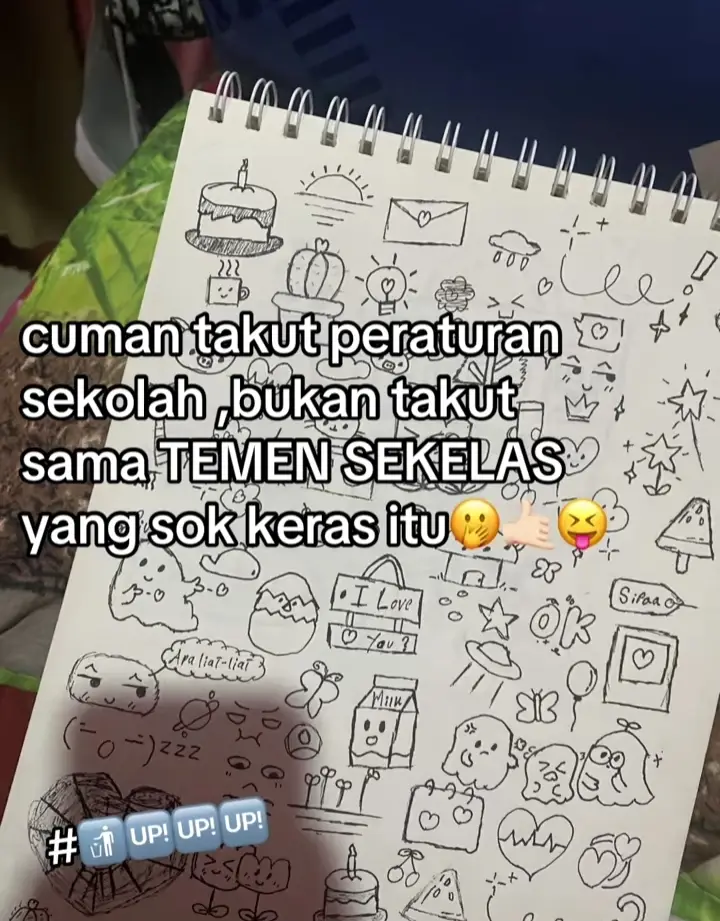 cuman takut peraturan
sekolah ,bukan takut
sama TEMEN SEKELAS
yang sok keras itu🫢🤙🏻😝
I Love
You?
Sipaa
OK
Apa liat-liat
Milk
(-o-)zzz
#🚮UP! UP! UP!